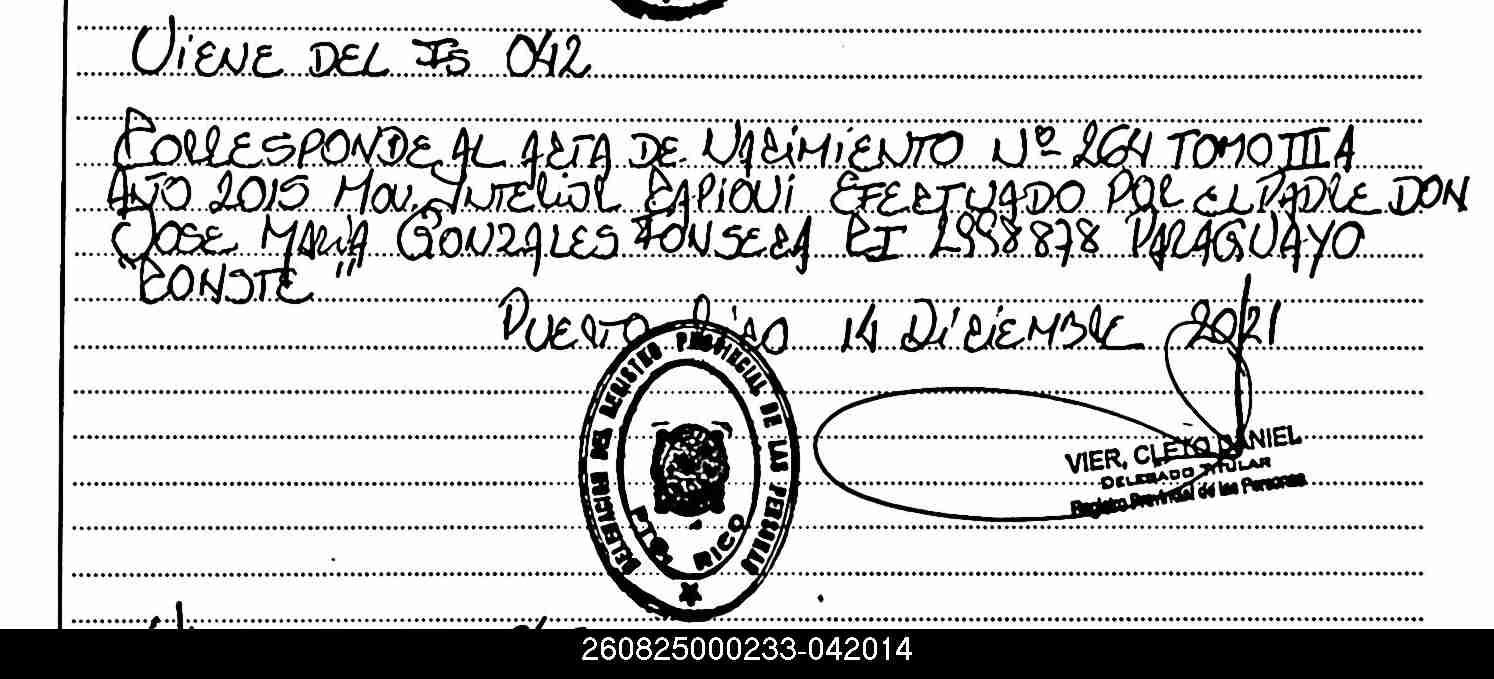 VIENE DEL FS 042
CORRESPONDE AL ACTA DE NACIMIENTO Nº 264 TOMO III A
AÑO 2015 MOV. INTERIOR CAPIOVI EFECTUADO POR EL PADRE DON
JOSE MARIA GONZALES FONSECA CI 2998878 PARAGUAYO
"CONSTE"
PUERTO RICO 14 DICIEMBRE 2021
DELEGACION DEL REGISTRO PROVINCIAL DE LAS PERSONAS
PTO. RICO
VIER, CLETO DANIEL
DELEGADO TITULAR
Registro Provincial de las Personas
260825000233-042014